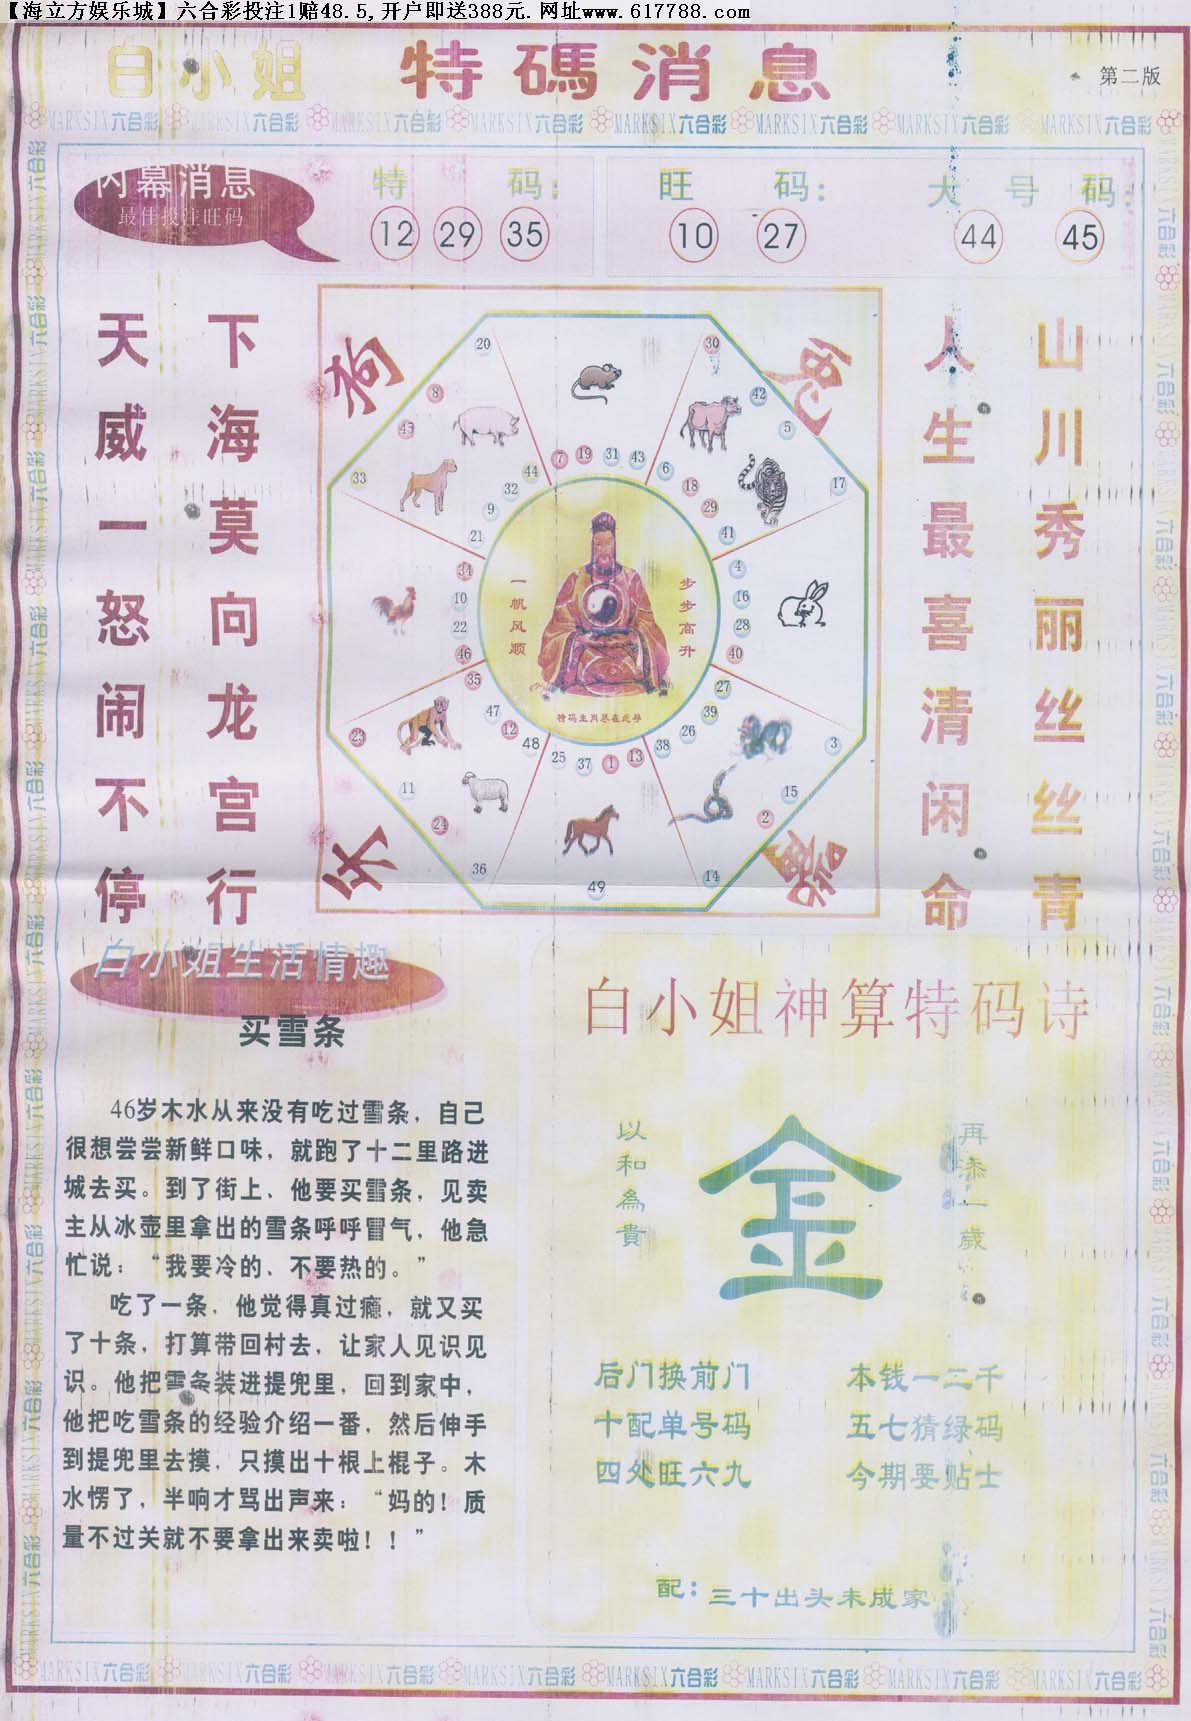 【海立方娱乐城】六合彩投注1赔48.5,开户即送388元.网址www.617788.com
白小姐 特碼消息
第二版
MARKSIX六合彩 MARKSIX六合彩 MARKSIX六合彩 MARKSIX六合彩 MARKSIX六合彩 MARKSIX六合彩 MARKSIX六合彩 MARKSIX六合彩
内幕消息
最佳投注旺码
特码:
12 29 35
旺码:
10 27
大号码:
44 45
天威一怒闹不停
下海莫向龙宫行
人生最喜清闲命
山川秀丽丝丝青
20 30
8 42
45 5
33 17
44 7 19 31 43 6
32 18
9 29
21 41
34 4
10 16
22 28
46 40
35 27
47 39
12 26
48 38
25 37 1 13
23 3
11 15
24 2
36 14
49
一帆风顺
步步高升
白小姐生活情趣
买雪条
46岁木水从来没有吃过雪条，自己
很想尝尝新鲜口味，就跑了十二里路进
城去买。到了街上、他要买雪条，见卖
主从冰壶里拿出的雪条呼呼冒气，他急
忙说：“我要冷的、不要热的。”
吃了一条，他觉得真过瘾，就又买
了十条，打算带回村去，让家人见识见
识。他把雪条装进提兜里，回到家中，
他把吃雪条的经验介绍一番，然后伸手
到提兜里去摸，只摸出十根上棍子。木
水愣了，半响才骂出声来：“妈的！质
量不过关就不要拿出来卖啦！！”
白小姐神算特码诗
以和為貴
金
再添一歲
后门换前门 本钱一二千
十配单号码 五七猜绿码
四处旺六九 今期要贴士
配：三十出头未成家
MARKSIX六合彩 MARKSIX六合彩 MARKSIX六合彩 MARKSIX六合彩 MARKSIX六合彩 MARKSIX六合彩 MARKSIX六合彩 MARKSIX六合彩